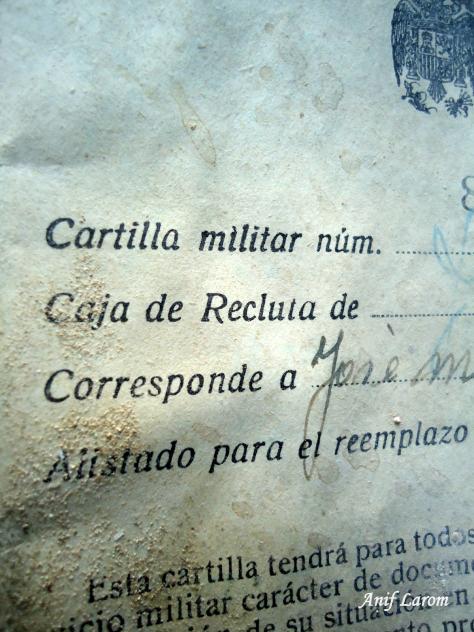 Cartilla militar núm.
Caja de Recluta de
Corresponde a José m
Alistado para el reemplazo
Esta cartilla tendrá para todos
vicio militar carácter de docume
de su situación en
Anif Larom